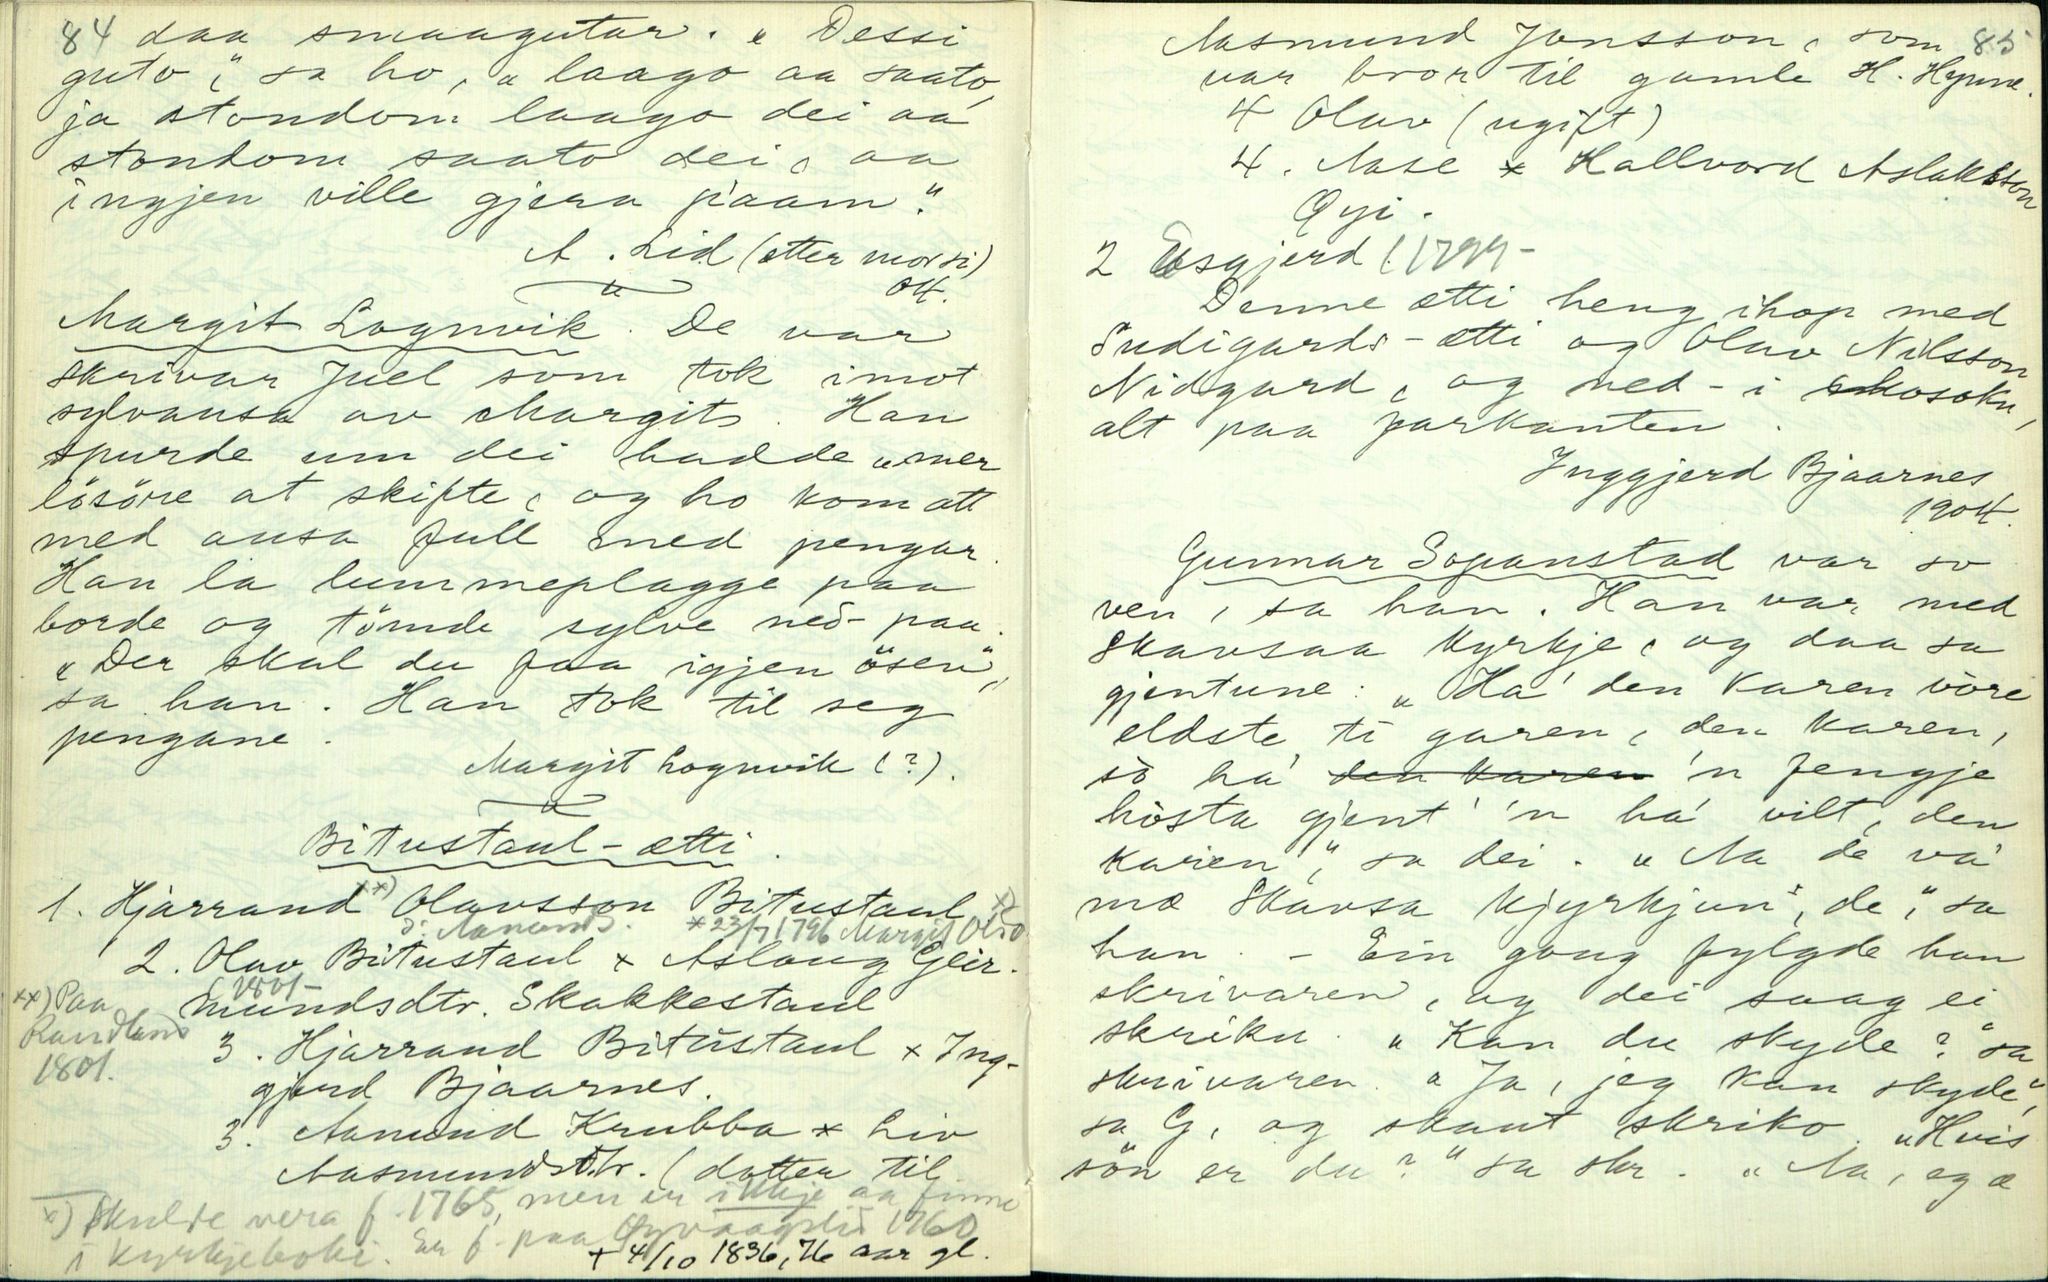 84 daa smaagutar. „Dessi
guto," sa ho, „laago aa saato,
ja stondom laago dei aa
stondom saato dei, aa
ingjen ville gjera p'aam."
A. Lid (etter mor si)
04.
Margit Lognvik. De var
skrivar Juel som tok imot
sylvausa av Margit. Han
spurde um dei hadde „mer
lösöre at skifte, og ho kom att
med ausa full med pengar.
Han la lummeplagge paa
borde og tömde sylve ned-paa.
„Der skal du faa igjen ösen",
sa han. Han tok til seg
pengane.
Margit Lognvik (?).
Bitustaul-ætti.
1. Hjarrand xx) Olavsson Bitustaul x)
* 23/7 1796 Margit Olsd.
2. Olav Bitustaul x Aslaug Geir-
(1801-
mundsdtr. Skakkestaul
xx) Paa
Randland
1801.
3. Hjarrand Bitustaul x Ing-
gjerd Bjaarnes.
3. Aanund Krubba x Liv
Aasmundsdtr. (dotter til
x) Skulde vera f. 1765, men er ikkje aa finne
i kyrkjeboki. Er f. paa Öyvaagsli 1760
+ 4/10 1836, 76 aar gl.
Aasmund Jonsson, som 85
var bror til gamle H. Hynne.
4 Olav (ugift)
4. Aase x Hallvord Aslaksson
Öyi.
2 Esgjerd (1799-
Denne ætti heng ihop med
Sudigards-ætti og Olav Nilsson
Nidgard, og ned-i Mosokn,
alt paa farkanten.
Inggjerd Bjaarnes
1904.
Gunnar Sopanstad var so
ven, sa han. Han var med
Skavsaa kyrkje, og daa sa
gjentune: „Ha' den karen vöre
eldste ti garen, den karen,
sò há' den karen 'n fengje
hòsta gjent' 'n há' vilt, den
karien'," sa dei. „Aa de va'
mæ Skavsa kjyrkjun', de," sa
han. - Ein gong fylgde han
skrivaren, og dei saag ei
skriku. „Kan du skyde?" sa
skrivaren. „Ja, jeg kan skyde",
sa G, og skaut skriko. „Hvis
sön er du?" sa skr. „Aa, eg æ